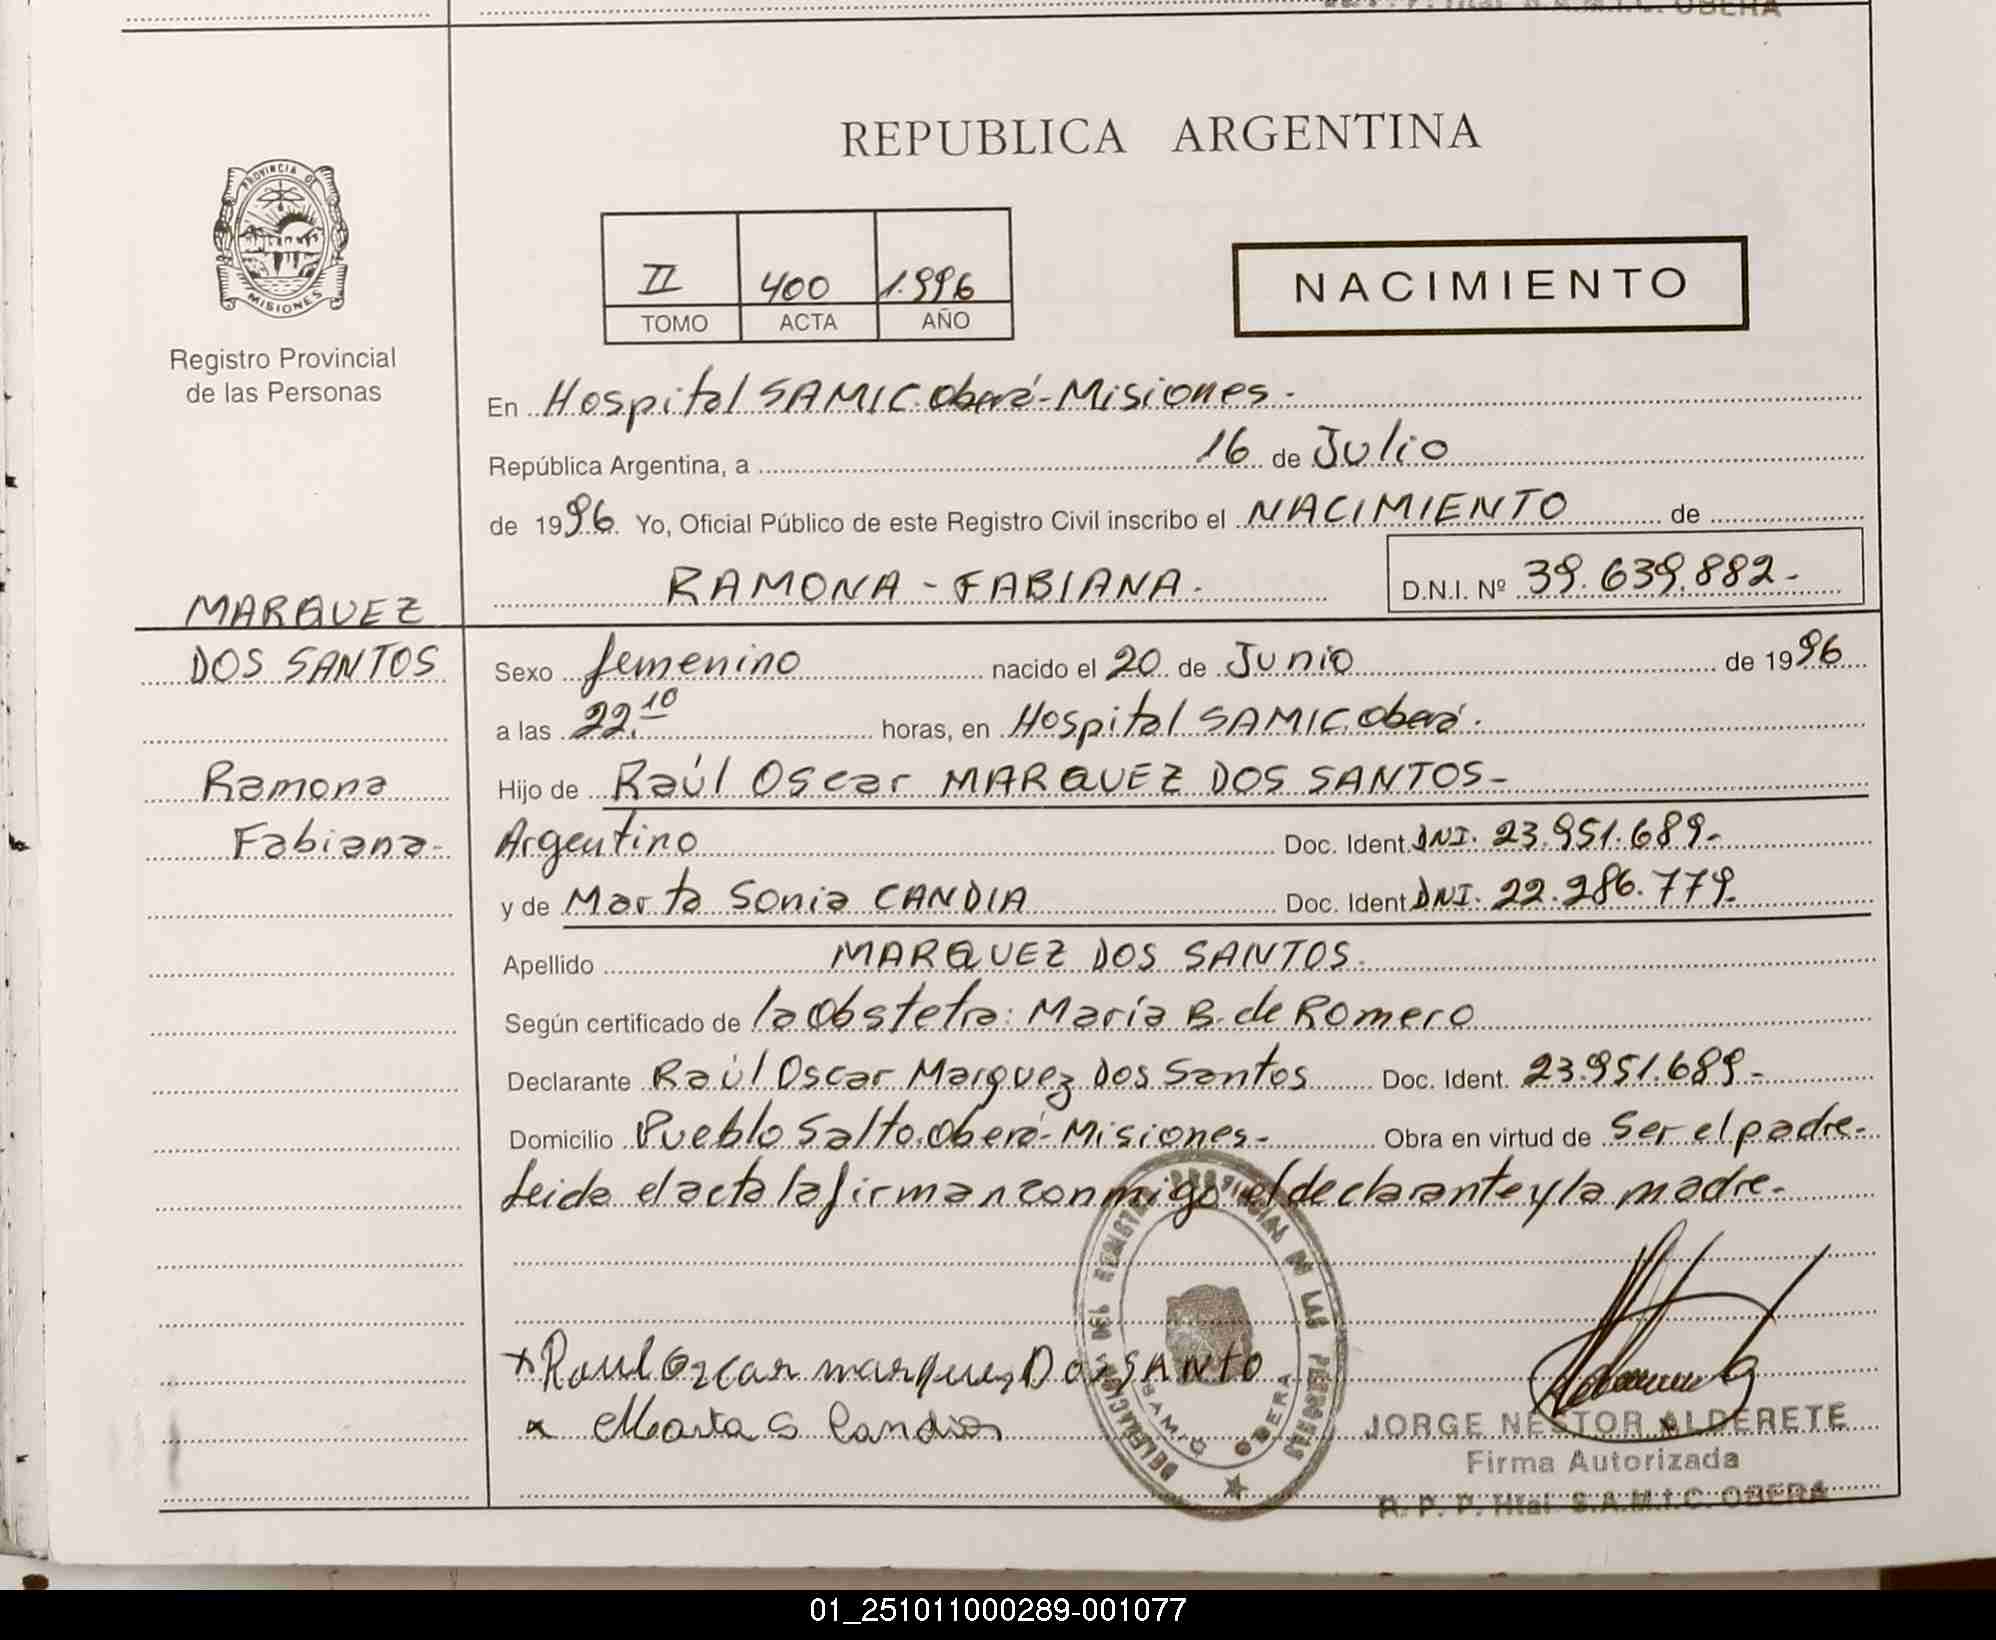 REPUBLICA ARGENTINA
PROVINCIA DE
MISIONES
Registro Provincial
de las Personas
II 400 1.996
TOMO ACTA AÑO
NACIMIENTO
En Hospital SAMIC Oberá - Misiones.
República Argentina, a 16 de Julio
de 1996. Yo, Oficial Público de este Registro Civil inscribo el NACIMIENTO de
RAMONA - FABIANA. D.N.I. Nº 39.639.882-
MARQUEZ
DOS SANTOS
Ramona
Fabiana-
Sexo femenino nacido el 20 de Junio de 1996
a las 22.10 horas, en Hospital SAMIC Oberá.
Hijo de Raúl Oscar MARQUEZ DOS SANTOS-
Argentino Doc. Ident. DNI. 23.951.689-
y de Marta Sonia CANDIA Doc. Ident DNI. 22.286.779-
Apellido MARQUEZ DOS SANTOS.
Según certificado de la Obstetra: María B. de Romero
Declarante Raúl Oscar Marquez Dos Santos Doc. Ident. 23.951.689-
Domicilio Pueblo Salto. Oberá - Misiones- Obra en virtud de Ser el padre-
Leida el acta la firman conmigo el declarante y la madre-
x Raul Ozcar marquez Dos SANTO
x Marta S Candia
DELEGACION DEL REGISTRO PROVINCIAL DE LAS PERSONAS
SAMIC OBERA
JORGE NESTOR ALDERETE
Firma Autorizada
R. P. P. Htal S.A.M.I.C. OBERA
01_251011000289-001077